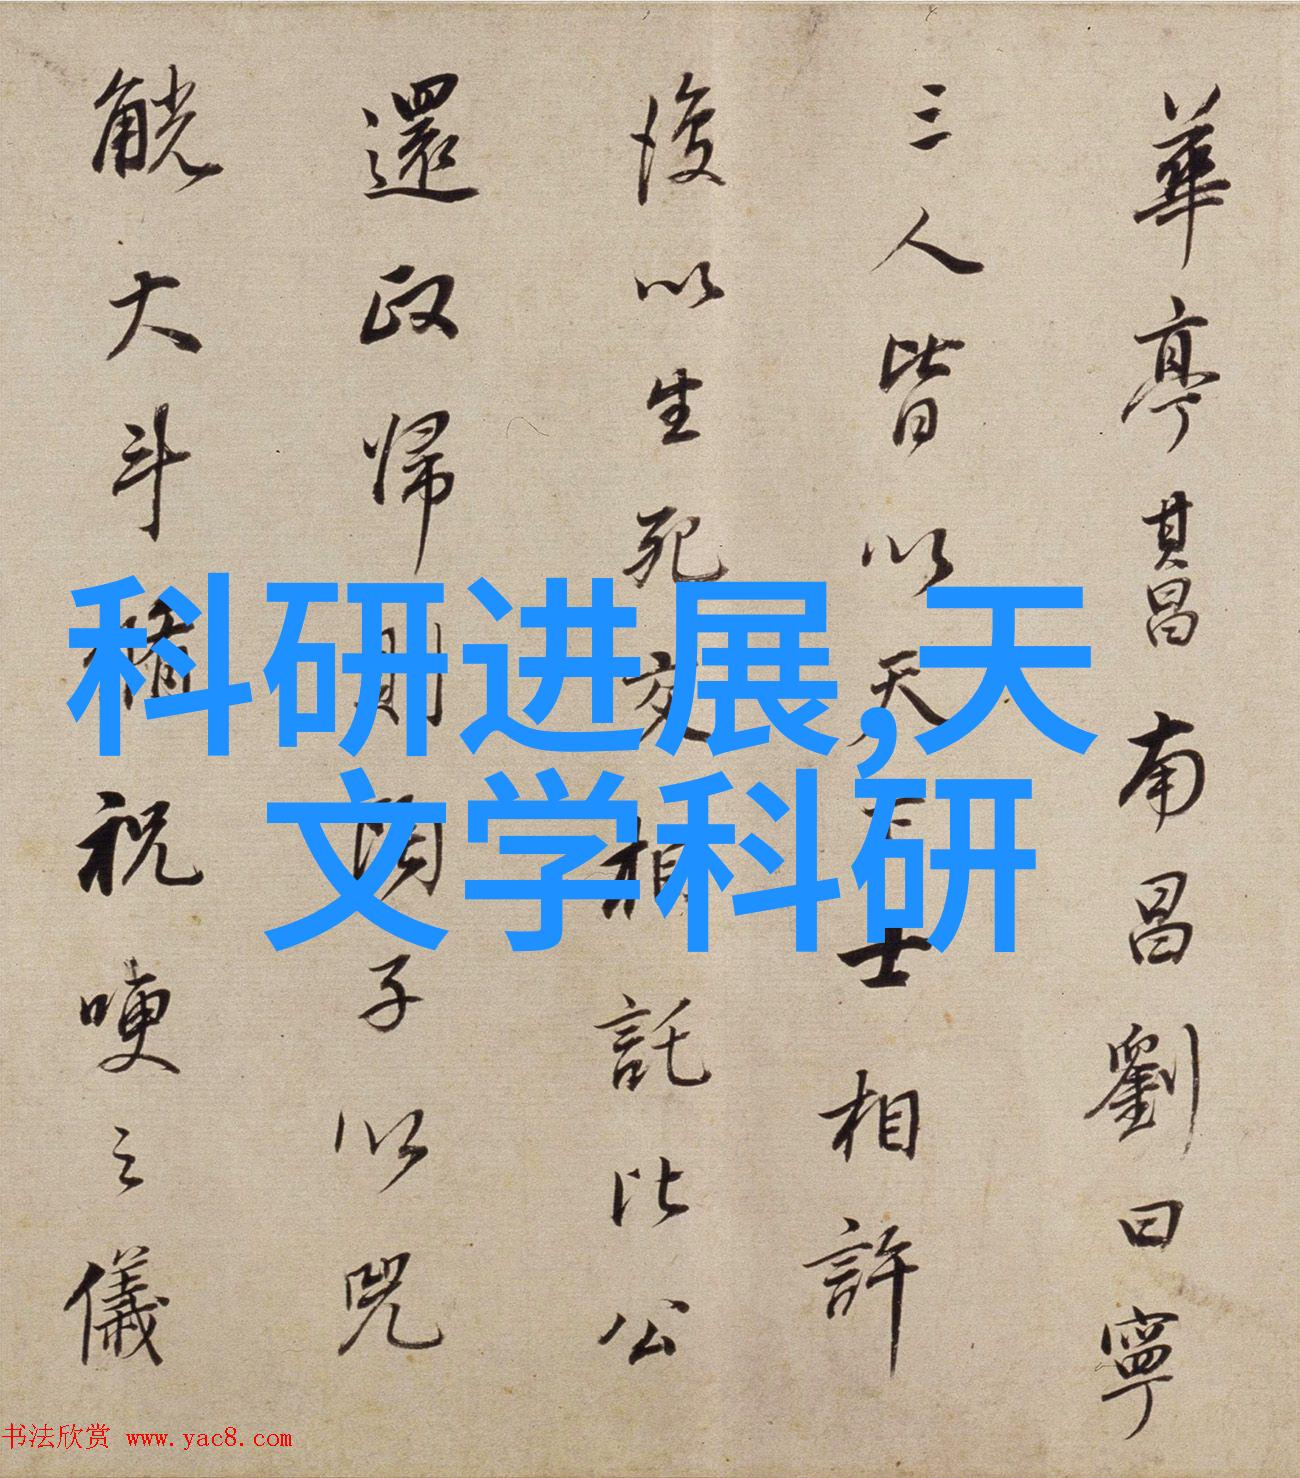 華亭其昌南昌劉曰寧
三人皆以天下士相許
後以生死交相託比公
還政歸則門子以兕
觥大斗脩祝哽之儀
科研进展,天
文学科研
书法欣赏 www.yac8.com